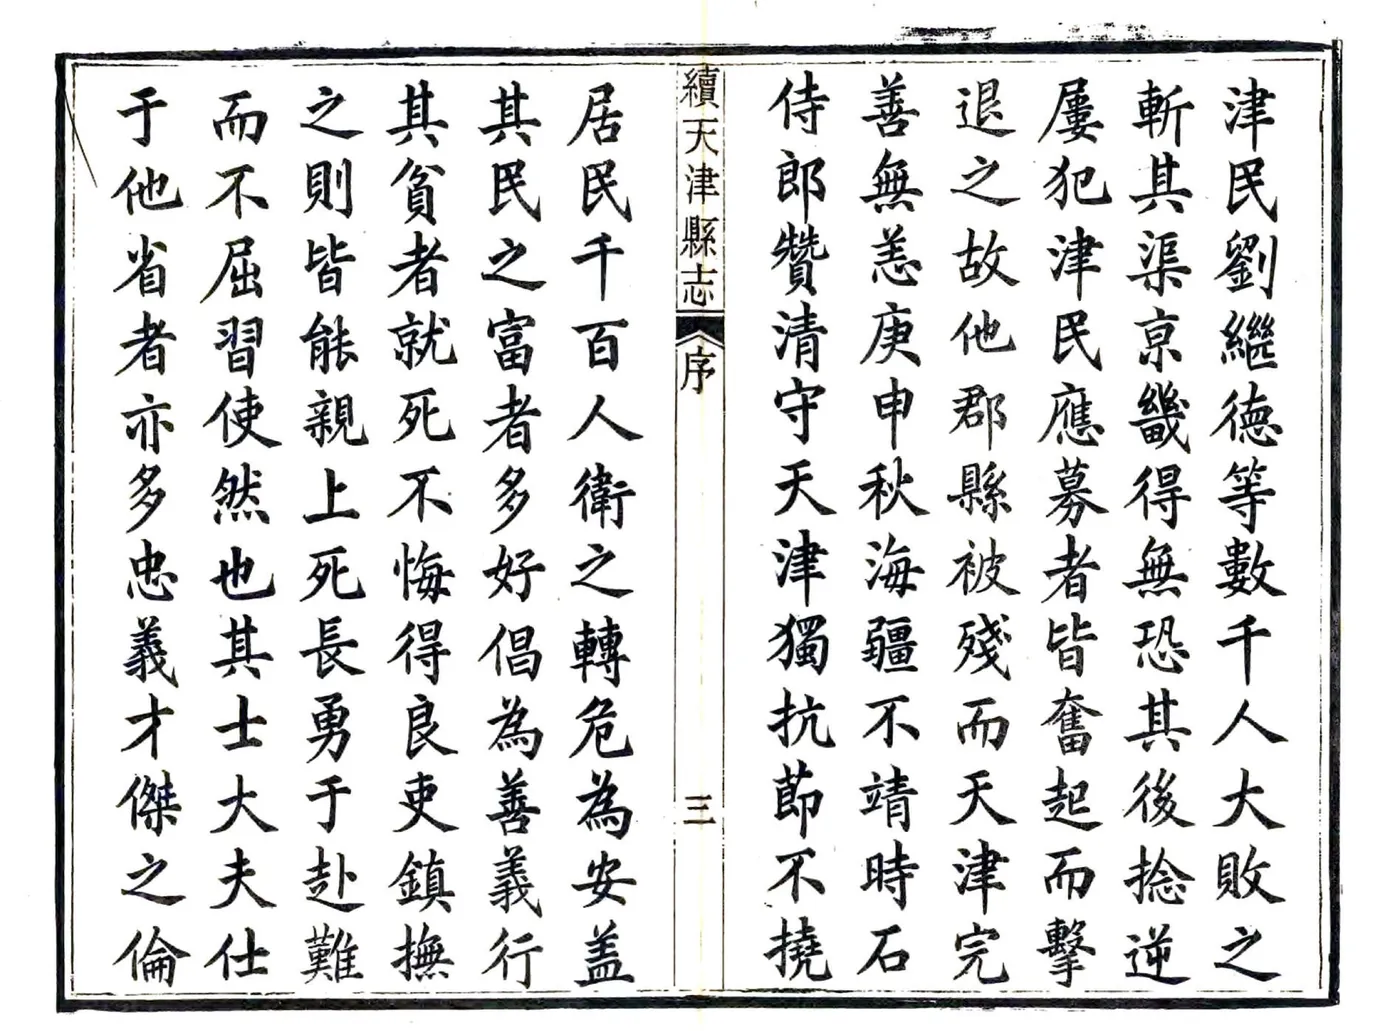 津民劉繼德等數千人大敗之
斬其渠京畿得無恐其後捻逆
屢犯津民應募者皆奮起而擊
退之故他郡縣被殘而天津完
善無恙庚申秋海疆不靖時石
侍郎贊清守天津獨抗節不撓
續天津縣志
序
三
居民千百人衛之轉危為安蓋
其民之富者多好倡為善義行
其貧者就死不悔得良吏鎮撫
之則皆能親上死長勇于赴難
而不屈習使然也其士大夫仕
于他省者亦多忠義才傑之倫